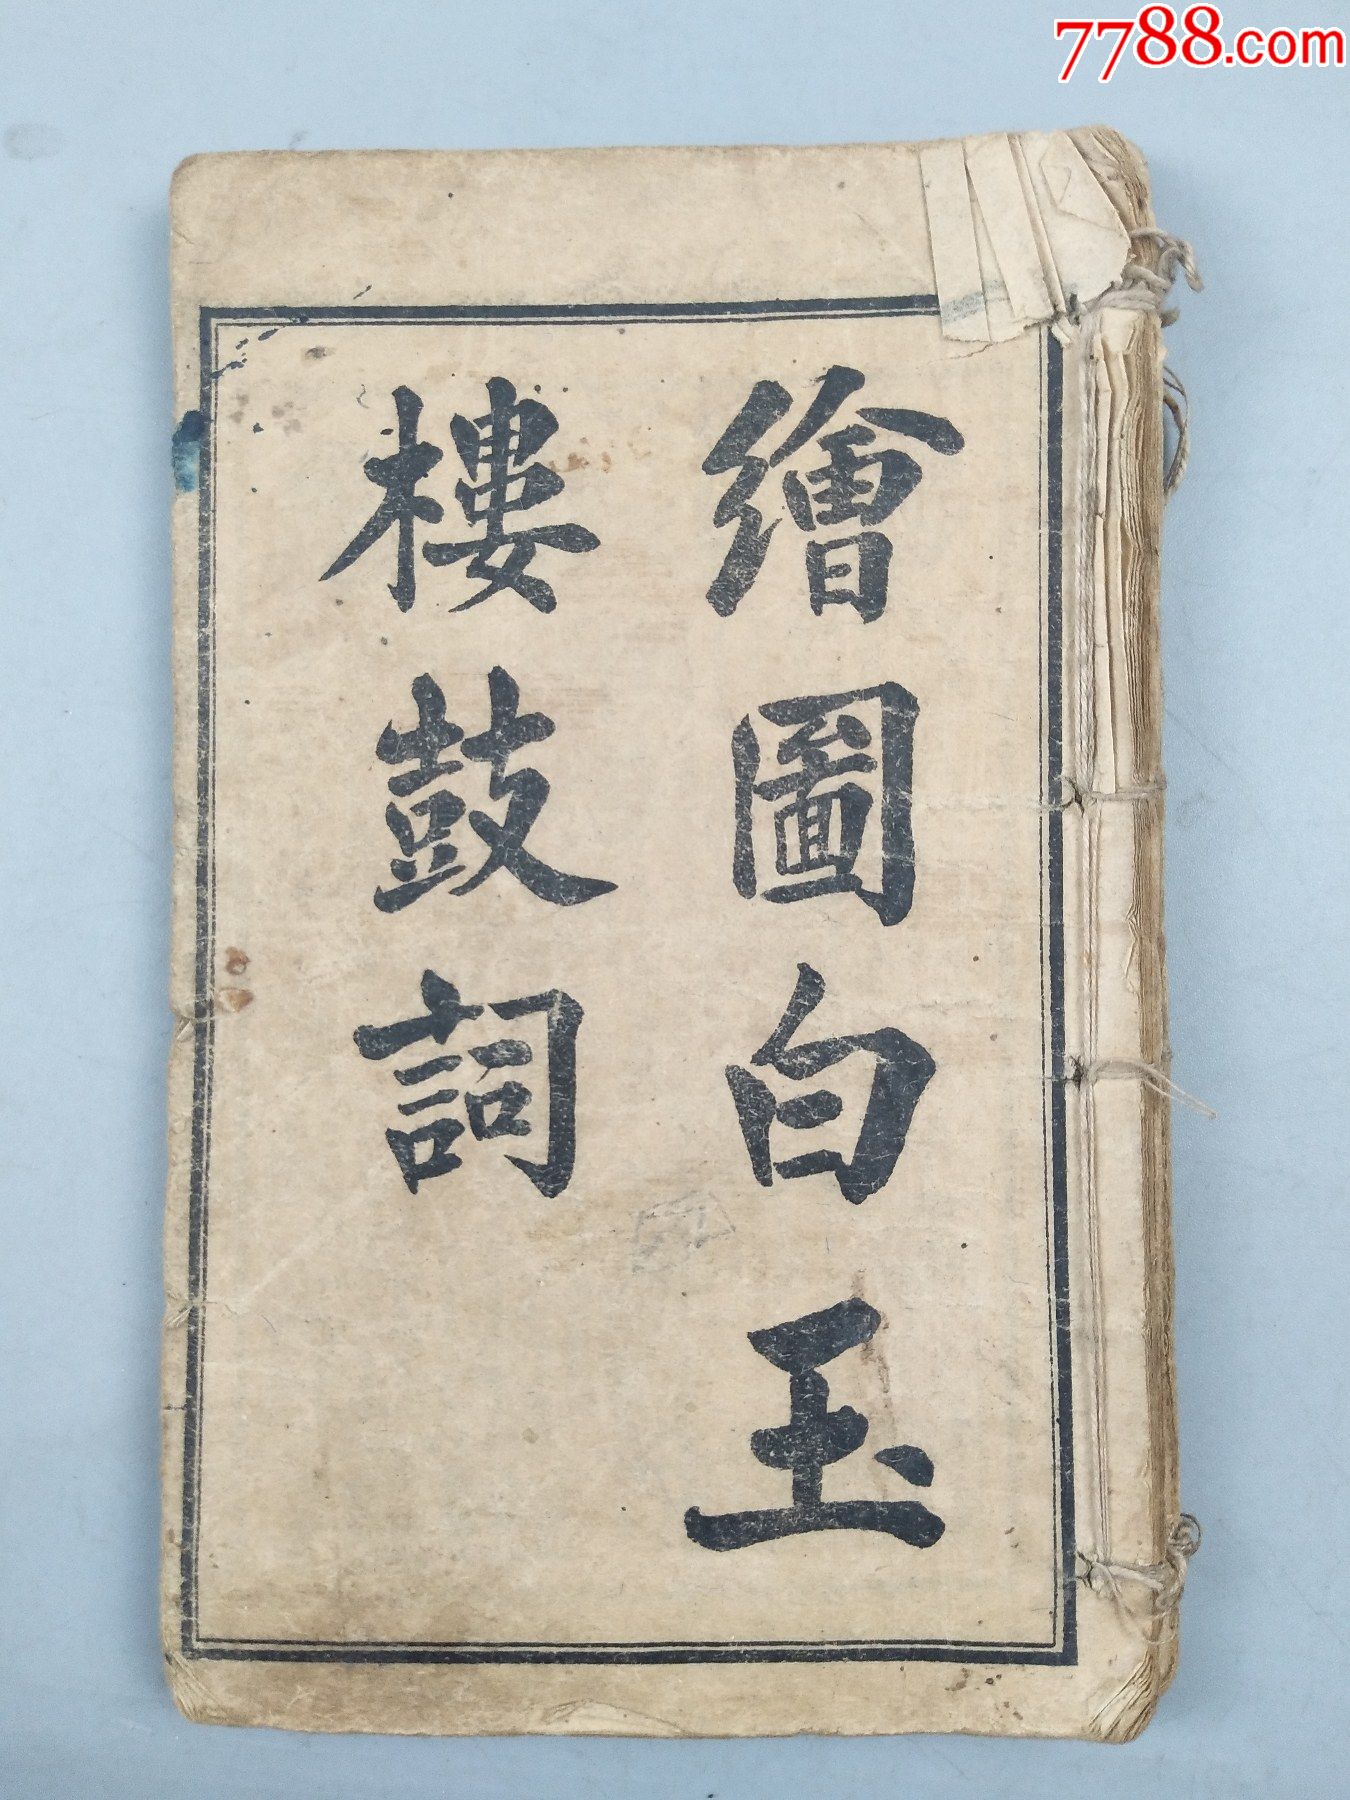 7788.com
繪圖白玉
樓鼓詞